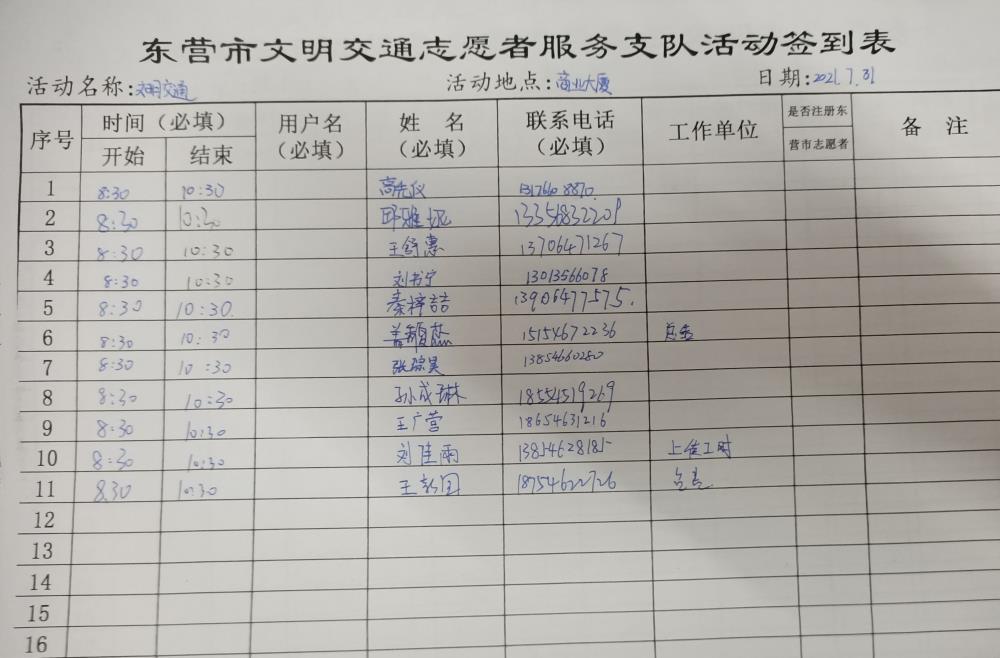 东营市文明交通志愿者服务支队活动签到表
活动名称:文明交通 活动地点:商业大厦 日期:2021.7.31
序号 时间（必填） 用户名（必填） 姓 名（必填） 联系电话（必填） 工作单位 是否注册东营市志愿者 备 注
开始 结束
1 8:30 10:30
2 8:30 10:30 13351832209
3 8:30 10:30 王舒惠 13706471267
4 8:30 10:30 刘书宁 13013566078
5 8:30 10:30 秦梓喆 13906477575.
6 8:30 10:30 15154672236
7 8:30 10:30 张琮昊 13854660280
8 8:30 10:30 孙成琳 18554519269
9 8:30 10:30 王广营 18654631216
10 8:30 10:30 刘佳雨 13854628185
11 8.30 10:30 王新国 18754622726
12
13
14
15
16